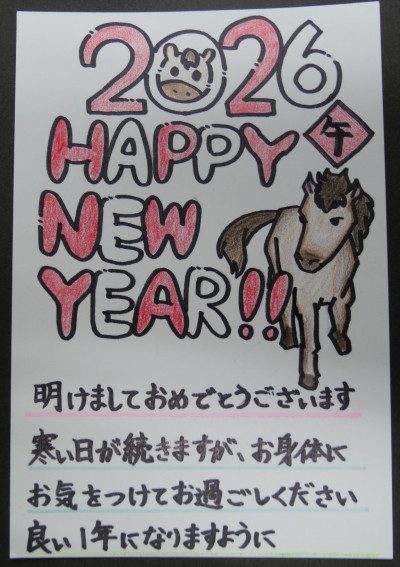 2026
HAPPY
午
NEW
YEAR!!
明けましておめでとうございます
寒い日が続きますが、お身体に
お気をつけてお過ごしください
良い1年になりますように